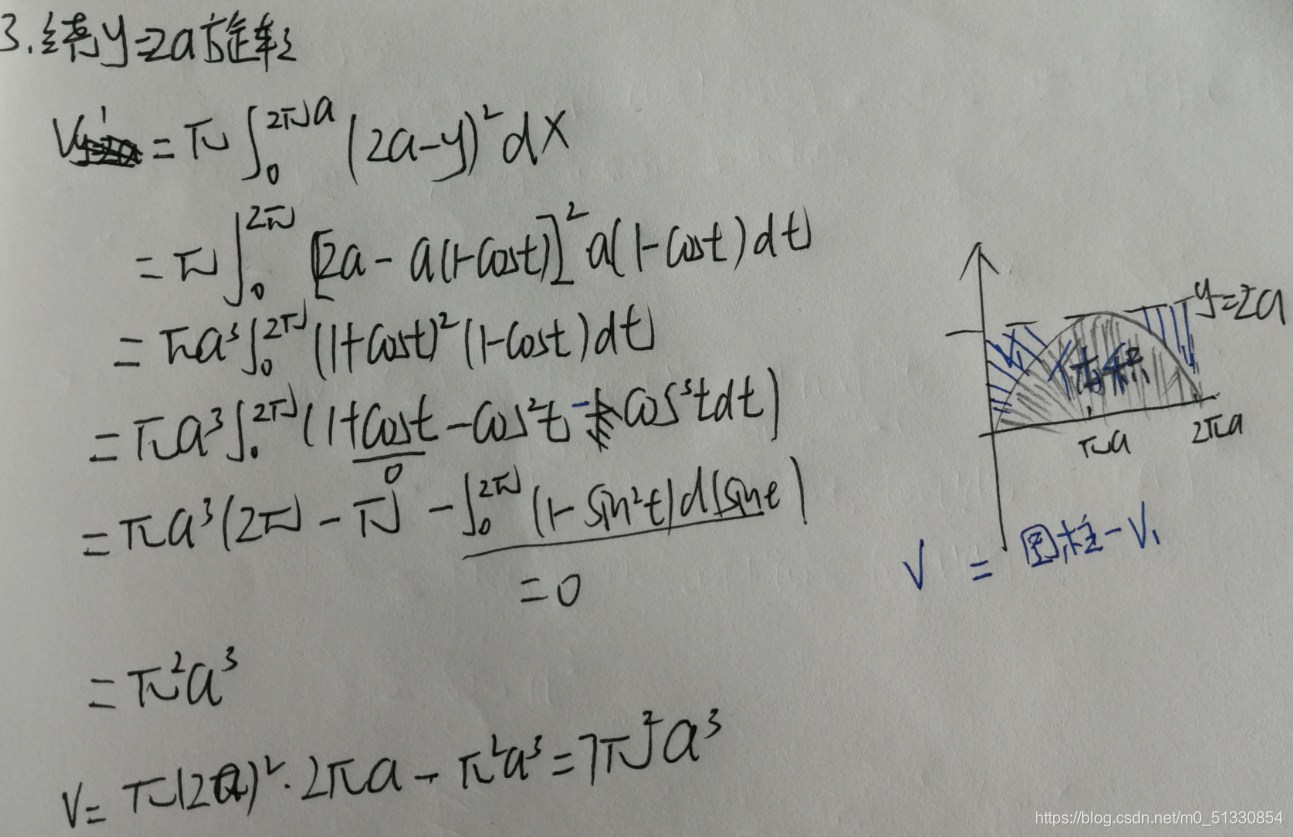 3.绕y=2a旋转
V₁ = π∫₀^{2πa} (2a-y)² dx
= π∫₀^{2π} [2a - a(1-cost)]² a(1-cost)dt
= πa³∫₀^{2π} (1+cost)²(1-cost)dt
= πa³∫₀^{2π} (1+cost-cos²t-cos³tdt)
0
= πa³(2π - π - ∫₀^{2π} (1-sin²t)d(sint)
=0
= π²a³
V= π(2a)²·2πa - π²a³=7π²a³
y=2a
V₁
πa
2πa
V = 圆柱-V₁
https://blog.csdn.net/m0_51330854